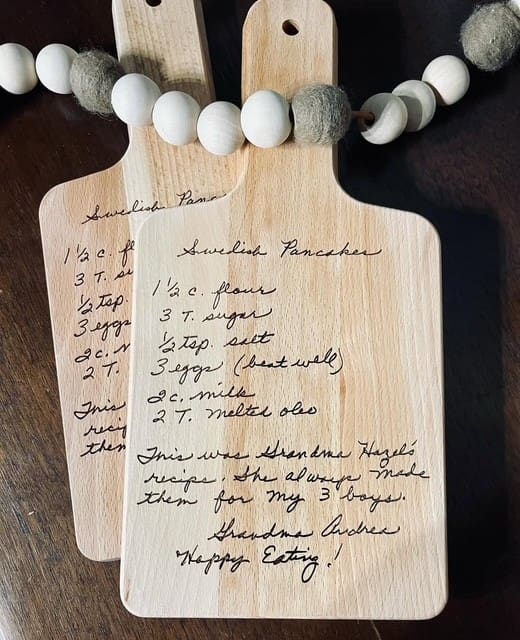 Swedish Panc
1 1/2 c. fl
3 T. su
1/2 tsp.
3 eggs
2 c. m
2 T.
This
recip
them
Swedish Pancakes
1 1/2 c. flour
3 T. sugar
1/2 tsp. salt
3 eggs (beat well)
2 c. milk
2 T. melted oleo
This was Grandma Hazel's
recipe. She always made
them for my 3 boys.
Grandma Andrea
Happy Eating!